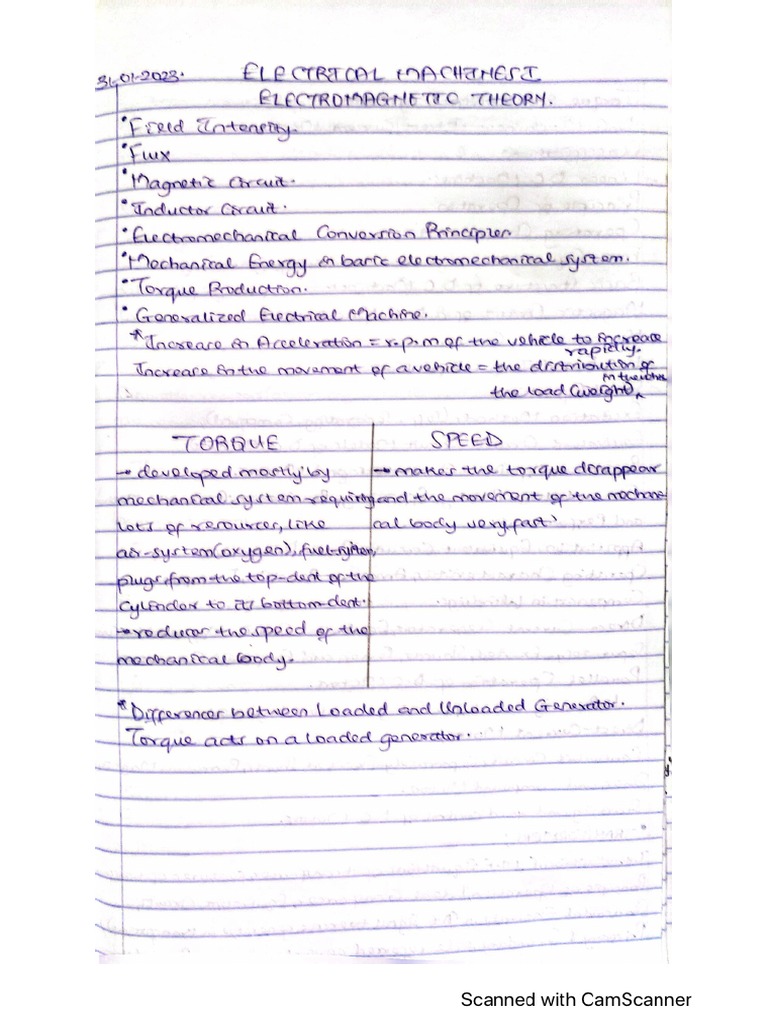 31-01-2023.
ELECTRICAL MACHINES I
ELECTROMAGNETIC THEORY.
• Field Intensity.
• Flux
• Magnetic Circuit.
• Inductor Circuit.
• Electromechanical Conversion Principles
• Mechanical Energy in basic electromechanical system.
• Torque Production.
• Generalized Electrical Machine.
* Increase in Acceleration = r.p.m of the vehicle to increase
rapidly.
Increase in the movement of a vehicle = the distribution of
the load (weight)
TORQUE
→ developed mostly by
mechanical system requiring
lots of resources, like
air-system(oxygen), fuel-system,
plugs from the top-dent of the
cylinder to its bottom-dent.
→ reduces the speed of the
mechanical body.
SPEED
→ makes the torque disappear
and the movement of the mechani-
cal body very fast
* Differences between Loaded and Unloaded Generator.
Torque acts on a loaded generator.
Scanned with CamScanner